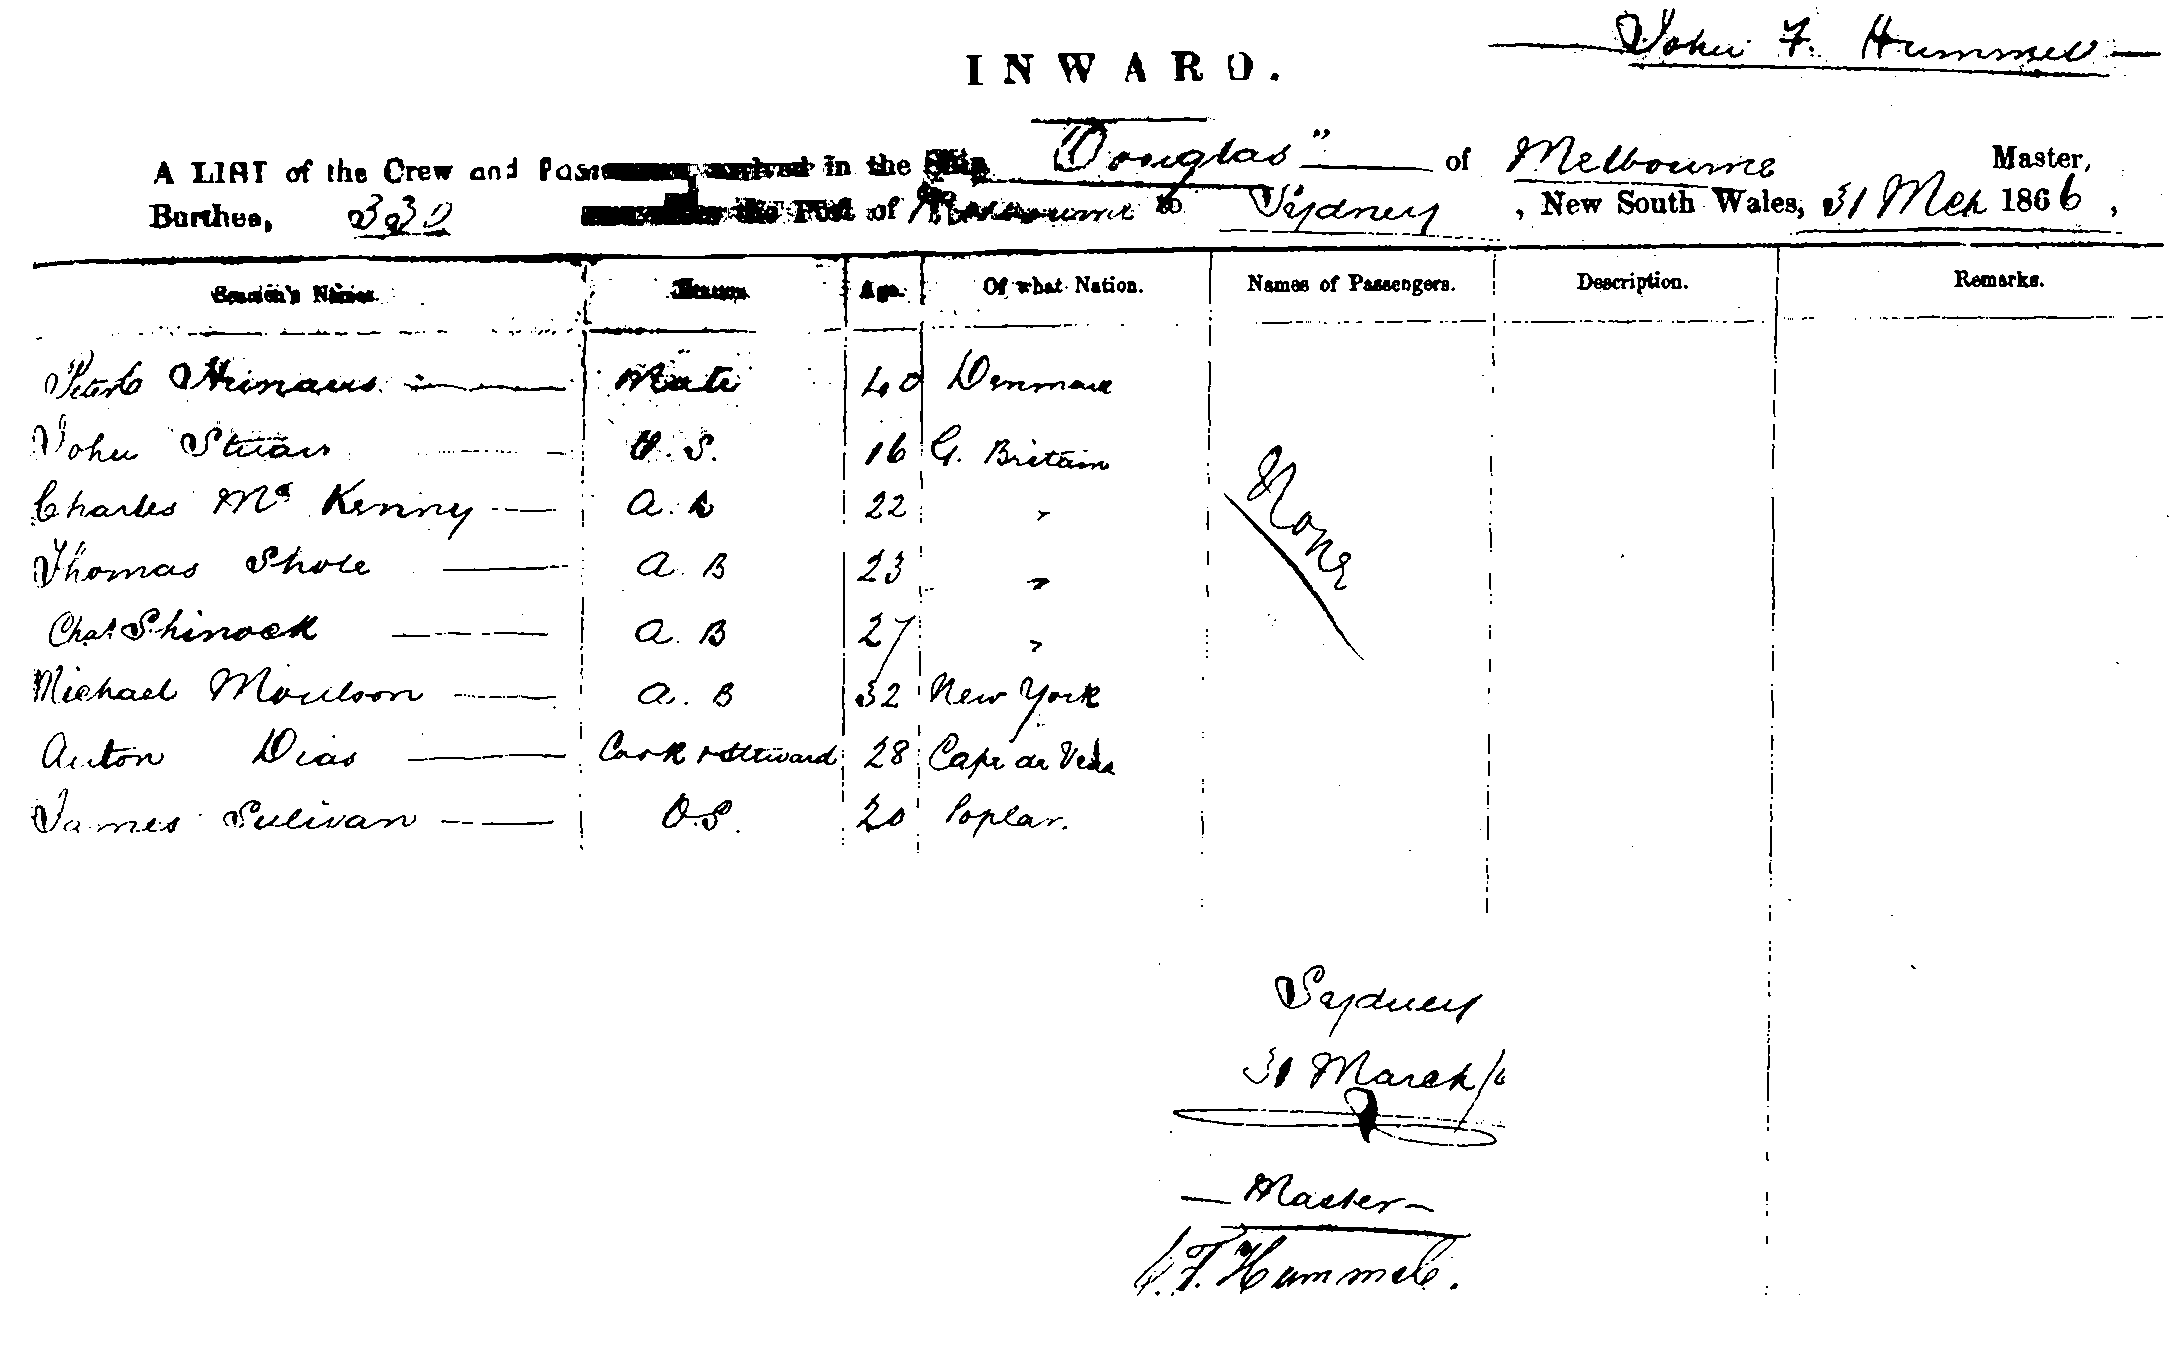 John F. Hummel
INWARD.
A LIST of the Crew and in the Ship "Douglas" of Melbourne Master,
Burthen, 330 the Port of Melbourne to Sydney, New South Wales, 31 Mch 1866,
Seamen's Names. Station. Age. Of what Nation. Names of Passengers. Description. Remarks.
Mate 40 Denmark
John O.S. 16 G. Britain
Charles Mc Kenny A.B 22 "
Thomas Shole A.B 23 "
Chas Shinock A.B 27 "
Michael Moulson A.B 32 New York
Anton Dias Cook & Steward 28 Cape de Verde
James Sulivan O.S. 20 Poplar.
None
Sydney
31 March
Master
J.F. Hummel.